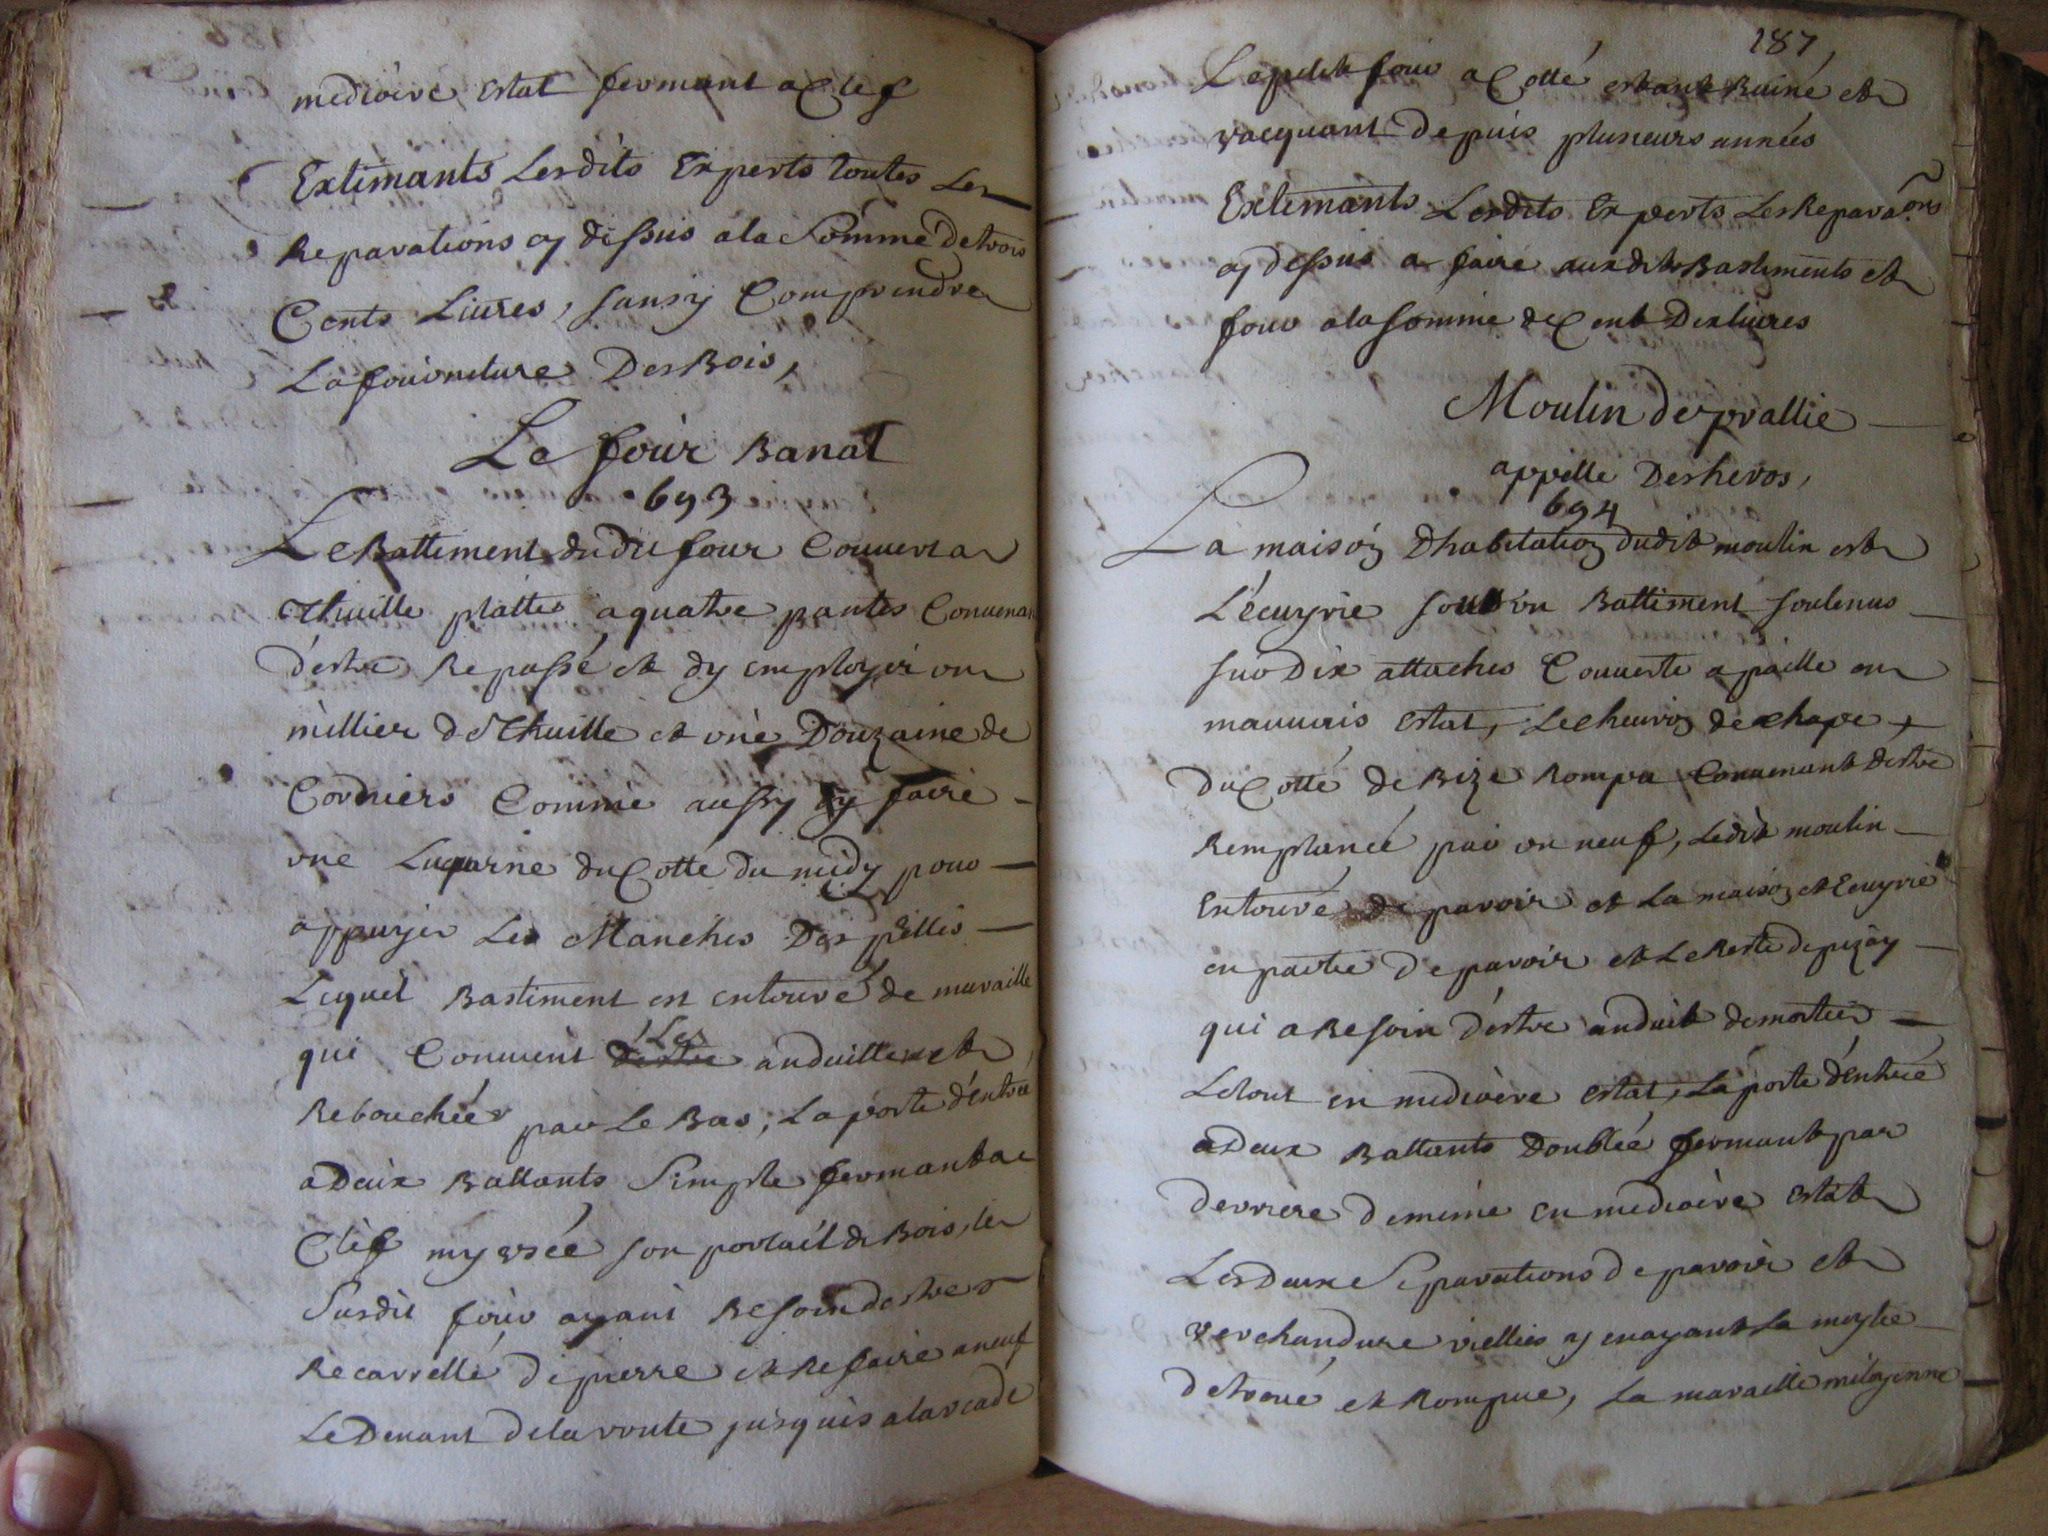 mediocre estat fermant a Clef
Extimants Lesdits Experts toutes Les
Reparations cy dessus a la Somme de trois
Cents Livres, sans y Comprendre
La fourniture Des Bois,
Le four Banal
693
Le Battiment dudit four Couvert a
Thuille platte a quatre pantes Convenan
d'estre Repassé et dy employer un
millier de Thuille et vne Douzaine de
Cordniers Comme aussy dy faire
vne Lucarne du Cotté du midy pour
appuyer Les Manches Des pelles
Lequel Bastiment est entouré de muraille
qui Convient Les anduitter et
Rebouchée par Le Bas, La porte d'entrée
a Deux Battants Simple fermant a
Clef my usée son portail de Bois, le
Susdit four ayant Besoin destre
Recarrellé de pierre et Refaire a neuf
Le Devant de la voute jusques a larcade
187
Le petit four a Cotté estant Ruiné et
vacquant Depuis plusieurs années
Extimants Lesdits Experts Les Reparaõns
cy dessus a faire auxdits Bastiments et
four a la somme de Cent Dix livres
Moulin de prallie
appelle Deshevos,
694
La maison Dhabitation dudit moulin et
L'écuyrie sous un Battiment soutenus
sur Dix attaches Couverte a paille en
mauvais estat, Le chevron de chape
du Cotté de Bize Rompu Convenant destre
Remplancé par un neuf, Ledit moulin
Entouré de paroir et La maison et Ecuyrie
en partie de paroir et Le Reste de pizay
qui a Besoin d'estre anduit de mortier
Le tout en mediocre estat, La porte d'entrée
a Deux Battants Doublée fermant par
derriere de meme en mediocre estat
Les Deux Separations de paroir et
verchandure viellies y en ayant La moytié
detroué et Rompue, La muraille mitoyenne